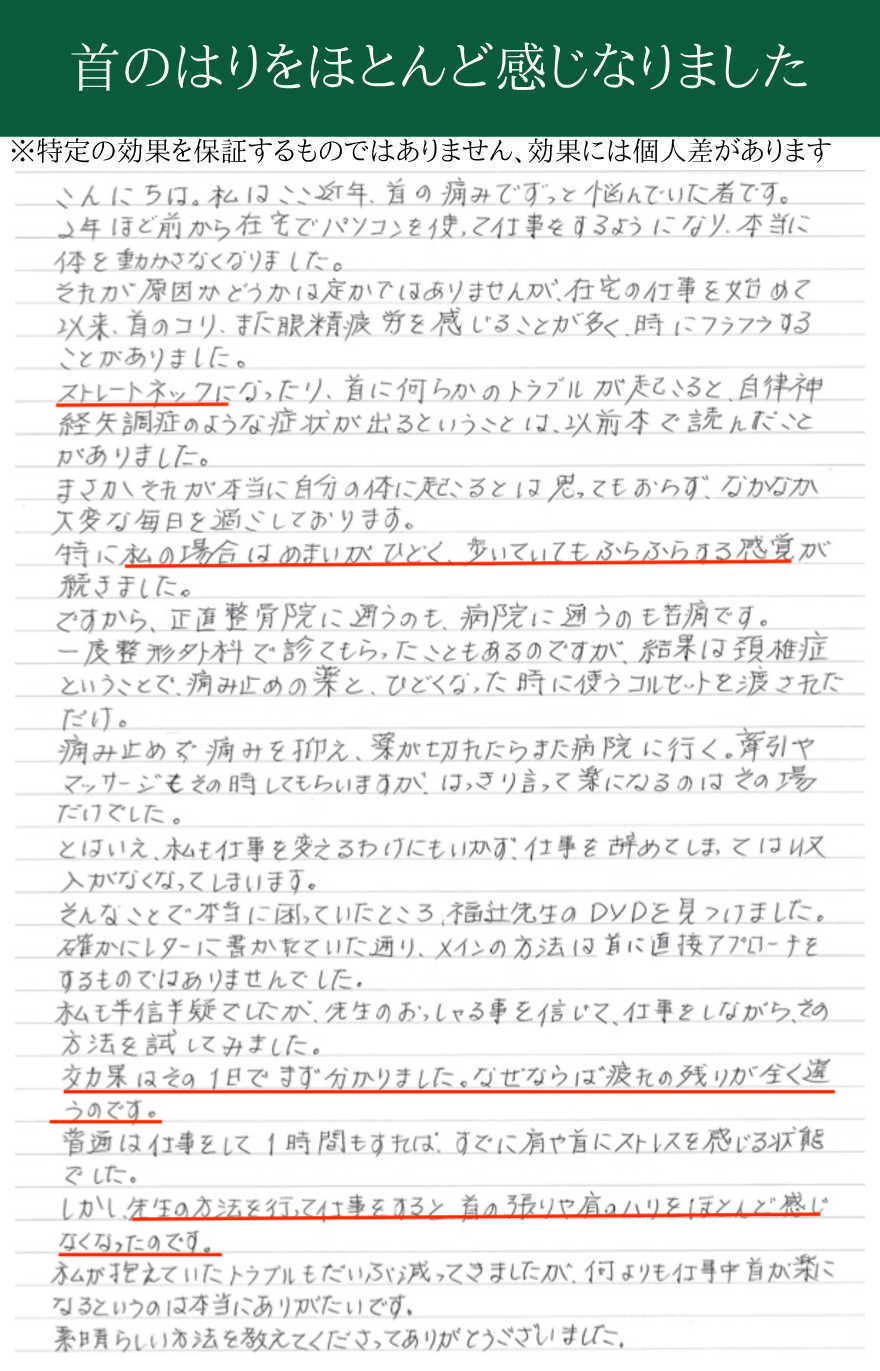 首のはりをほとんど感じなりました
※特定の効果を保証するものではありません、効果には個人差があります
こんにちは。私はここ近年、首の痛みでずっと悩んでいた者です。
2年ほど前から在宅でパソコンを使って仕事をするようになり、本当に
体を動かさなくなりました。
それが原因かどうかは定かではありませんが、在宅の仕事を始めて
以来、首のコリ、また眼精疲労を感じることが多く、時にフラフラする
ことがありました。
ストレートネックになったり、首に何らかのトラブルが起こると、自律神
経失調症のような症状が出るということは、以前本で読んだこと
がありました。
まさかそれが本当に自分の体に起こるとは思ってもおらず、なかなか
大変な毎日を過ごしております。
特に私の場合はめまいがひどく、歩いていてもふらふらする感覚が
続きました。
ですから、正直整骨院に通うのも、病院に通うのも苦痛です。
一度整形外科で診てもらったこともあるのですが、結果は頚椎症
ということで、痛み止めの薬と、ひどくなった時に使うコルセットを渡された
だけ。
痛み止めで痛みを抑え、薬が切れたらまた病院に行く。牽引や
マッサージもその時してもらいますが、はっきり言って楽になるのはその場
だけでした。
とはいえ、私も仕事を変えるわけにもいかず、仕事を辞めてしまっては収
入がなくなってしまいます。
そんなことで本当に困っていたところ、福辻先生のDVDを見つけました。
確かにレターに書かれていた通り、メインの方法は首に直接アプローチを
するものではありませんでした。
私も半信半疑でしたが、先生のおっしゃる事を信じて、仕事をしながら、その
方法を試してみました。
効果はその1日でまず分かりました。なぜならば疲れの残りが全く違
うのです。
普通は仕事をして1時間もすれば、すでに肩や首にストレスを感じる状態
でした。
しかし、先生の方法を行って仕事をすると、首の張りや肩のハリをほとんど感じ
なくなったのです。
私が抱えていたトラブルもだいぶ減ってきましたが、何よりも仕事中首が楽に
なるというのは本当にありがたいです。
素晴らしい方法を教えてくださってありがとうございました。